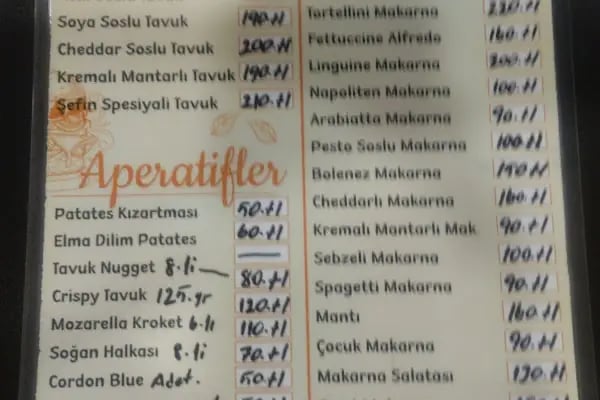 Soya Soslu Tavuk 190.tl
Cheddar Soslu Tavuk 200.tl
Kremalı Mantarlı Tavuk 190.tl
Şefin Spesiyali Tavuk 210.tl
Aperatifler
Patates Kızartması 50.tl
Elma Dilim Patates 60.tl
Tavuk Nugget 8.li — 80.tl
Crispy Tavuk 125.gr 120.tl
Mozarella Kroket 6.lı 110.tl
Soğan Halkası 8.li 70.tl
Cordon Blue Adet. 50.tl
Tortellini Makarna 220.tl
Fettuccine Alfredo 160.tl
Linguine Makarna 200.tl
Napoliten Makarna 100.tl
Arabiatta Makarna 90.tl
Pesto Soslu Makarna 100.tl
Bolenez Makarna 150.tl
Cheddarlı Makarna 160.tl
Kremalı Mantarlı Mak 90.tl
Sebzeli Makarna 100.tl
Spagetti Makarna 90.tl
Mantı 160.tl
Çocuk Makarna 90.tl
Makarna Salatası 130.tl